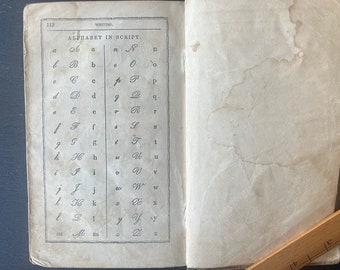 112 WRITING.
ALPHABET IN SCRIPT.
a A a n N n
b B b o O o
c C c p P p
d D d q Q q
e E e r R r
f F f s S s
g G g t T t
h H h u U u
i I i v V v
j J j w W w
k K k x X x
l L l y Y y
m M m z Z z